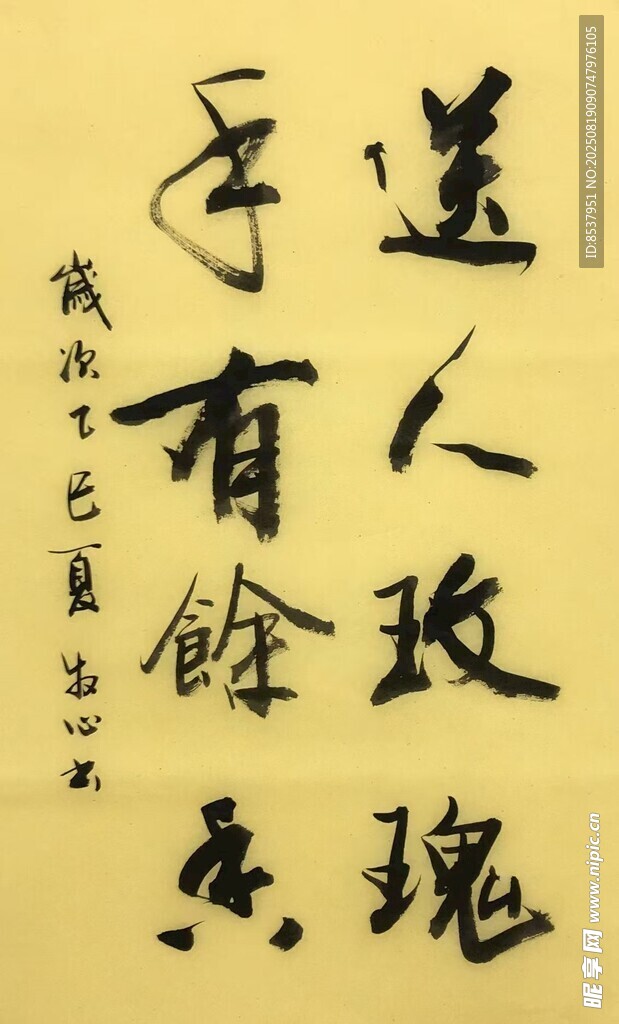 送人玫瑰
手有餘香
歲次乙巳夏牧心书
ID:8537951 NO:20250819090747976105
昵享网 www.nipic.cn